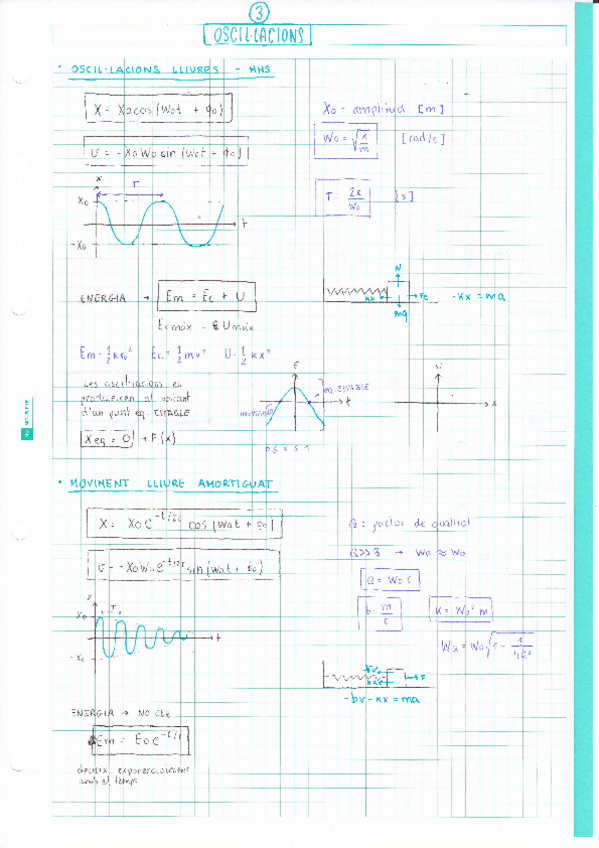 3
OSCIL·LACIONS
• OSCIL·LACIONS LLIURES - MHS
X = Xo cos (Wot + φo)
Xo - amplitud [m]
v = -XoWo sin (Wot + φo)
Wo = √(k/m) [rad/s]
x
T
Xo
-Xo
t
T = 2π/Wo [s]
ENERGIA → Em = Ec + U
Ecmàx = Umàx
N
kx
Fe
mg
-kx = ma
Em = 1/2 kxo² Ec = 1/2 mv² U = 1/2 kx²
Les oscil·lacions es
produeixen al voltant
d'un punt eq. ESTABLE
Xeq = 0 → F(x)
E
eq. ESTABLE
t
x
• MOVIMENT LLIURE AMORTIGUAT
X = Xo e^-t/2τ cos (Wat + φo)
Q = factor de qualitat
Q>>3 → Wa ≈ Wo
v = -XoWo e^-t/2τ sin (Wat + φo)
Q = Wo τ
b = m/τ
K = Wo² m
Xo
T
-Xo
t
-bv - kx = ma
ENERGIA → NO cte
Em = Eo e^-t/τ
decreix exponencialment
amb el temps